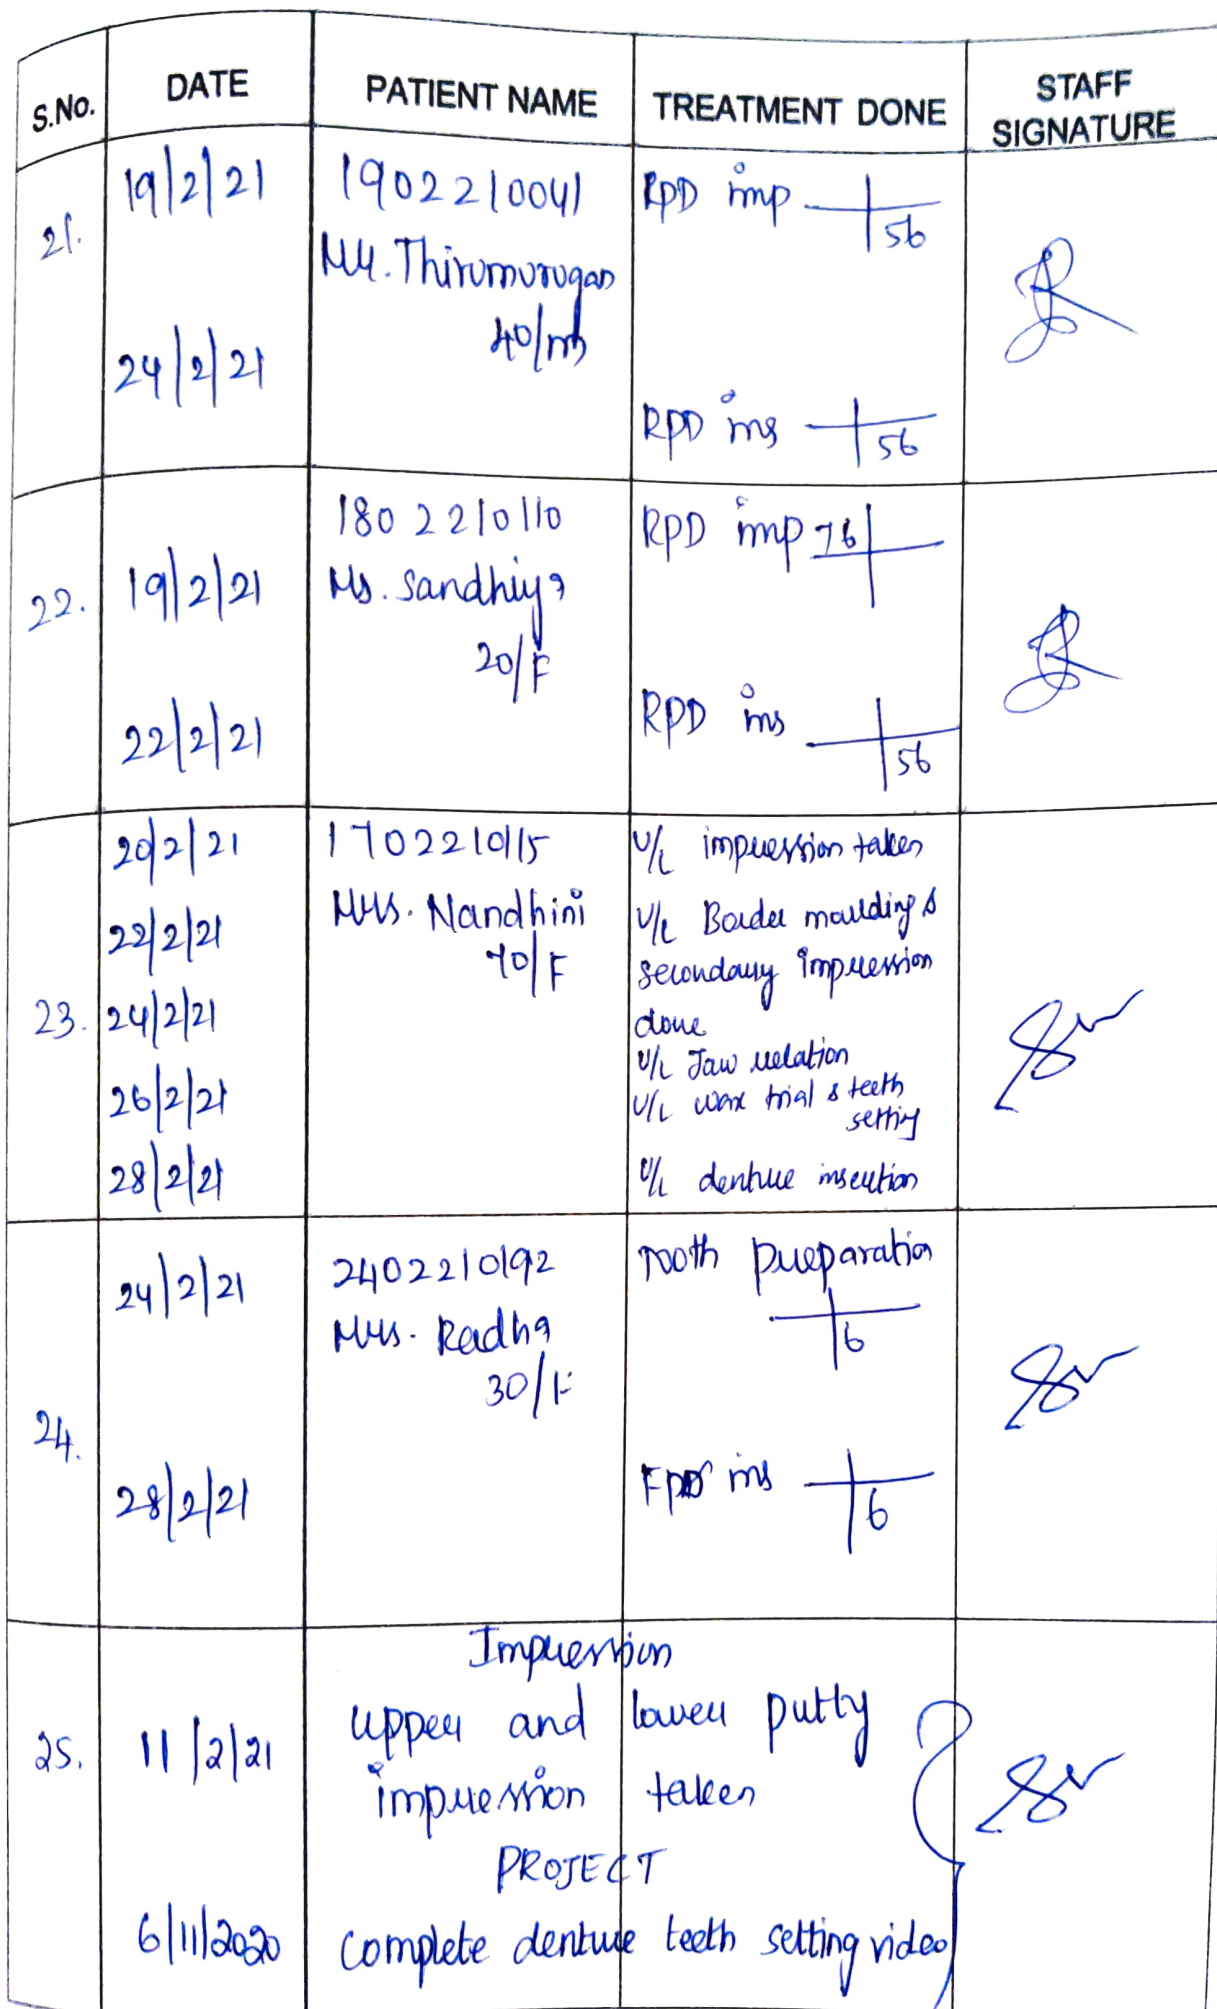 S.No. DATE PATIENT NAME TREATMENT DONE STAFF SIGNATURE
21.
19/2/21
24/2/21
1902210041
Mr. Thirumurugan
40/m
RPD imp 56
RPD ins 56
22.
19/2/21
22/2/21
1802210110
Ms. Sandhiya
20/F
RPD imp 76
RPD ins 56
23.
20/2/21
22/2/21
24/2/21
26/2/21
28/2/21
1702210115
Mrs. Nandhini
70/F
U/L impression taken
U/L Border moulding &
secondary impression
done
U/L Jaw relation
U/L wax trial & teeth
setting
U/L denture insertion
24.
24/2/21
28/2/21
2402210192
Mrs. Radha
30/F
Tooth preparation
6
FPD ins 6
25.
11/2/21
Impression
upper and lower putty
impression taken
PROJECT
6/11/2020
complete denture teeth setting video